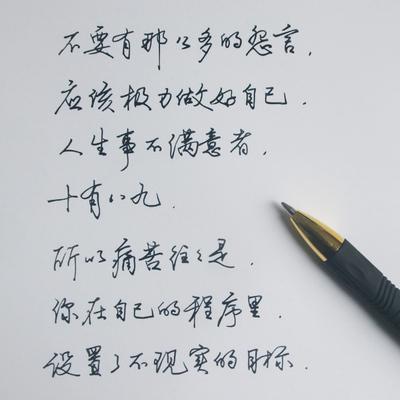 不要有那么多的怨言.
应该极力做好自己.
人生事不满意者.
十有八九.
所以痛苦往往是.
你在自己的程序里.
设置了不现实的目标.